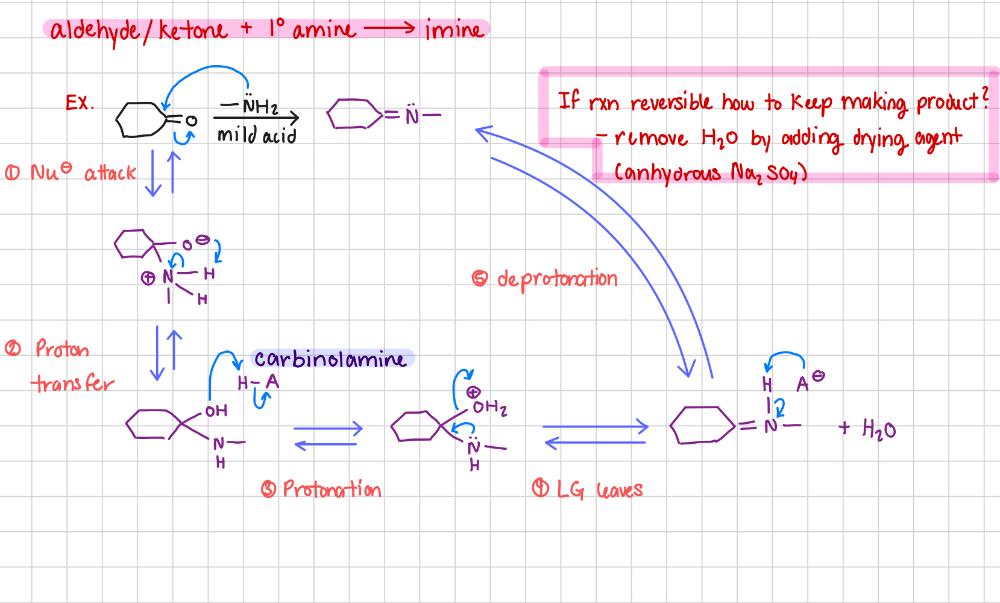 aldehyde/ketone + 1° amine ⟶ imine
EX.
O
–N̈H₂
mild acid
N̈
If rxn reversible how to keep making product?
– remove H₂O by adding drying agent
(anhydrous Na₂SO₄)
① Nu⊖ attack
O⊖
⊕N–H
H
⑤ deprotonation
② Proton
transfer
carbinolamine
H–A
OH
N
H
③ Protonation
⊕
OH₂
N̈
H
④ LG leaves
H A⊖
N
+ H₂O